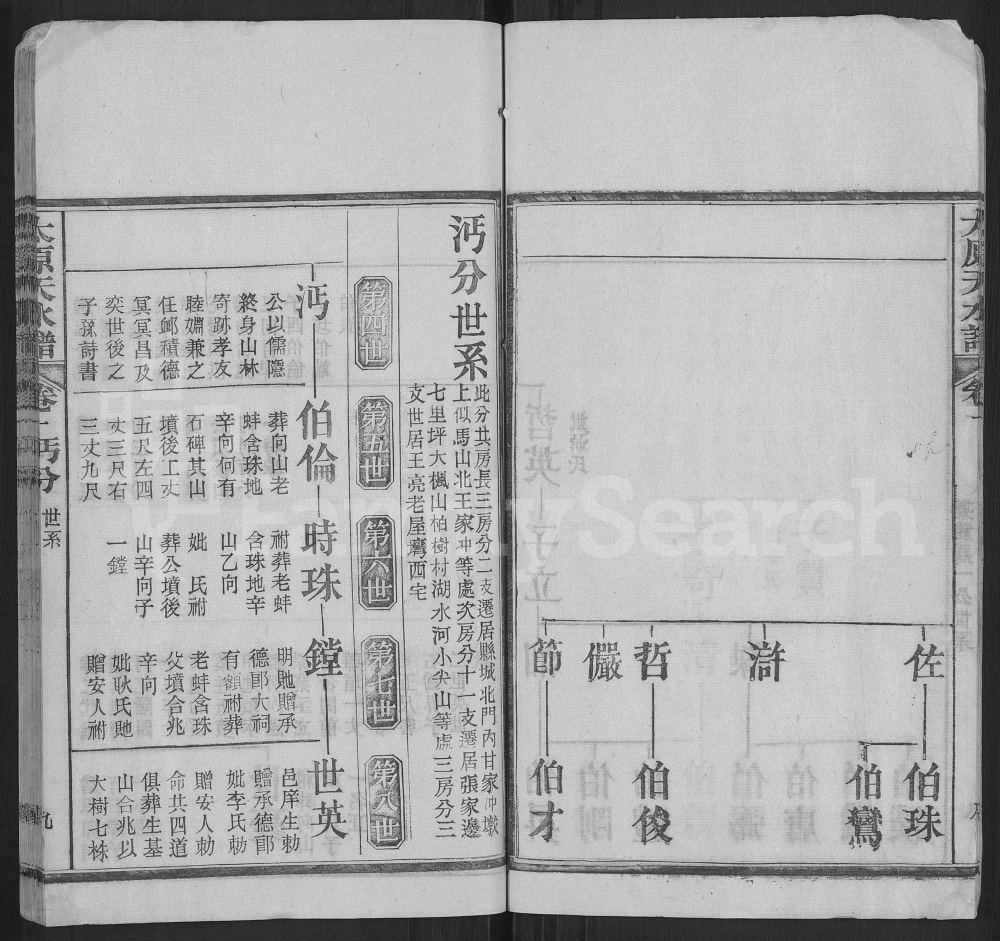 佐
伯珠
伯鸞
滸
哲
伯俊
儼
節
伯才
沔分世系
此分共房長三房分二支遷居縣城北門內甘家冲墩
上似馬山北王家冲等處次房分十一支遷居張家邊
七里坪大楓山柏樹村湖水河小尖山等處三房分三
支世居王亮老屋灣西宅
第四世
第五世
第六世
第七世
第八世
沔
公以儒隱
終身山林
寄跡孝友
睦婣兼之
任卹積德
冥冥昌及
奕世後之
子孫詩書
伯倫
葬向山老
蚌含珠地
辛向何有
石碑其山
墳後工丈
五尺左四
丈三尺右
三丈九尺
時珠
祔葬老蚌
含珠地辛
山乙向
妣 氏祔
葬公墳後
山辛向子
一鏜
鏜
明貤贈承
德郎大祠
有額祔葬
老蚌含珠
父墳合兆
辛向
妣耿氏貤
贈安人祔
世英
邑庠生勅
贈承德郎
妣李氏勅
贈安人勅
命共四道
俱葬生基
山合兆以
大樹七株
太原天水譜
卷一
沔分
世系
九
FamilySearch